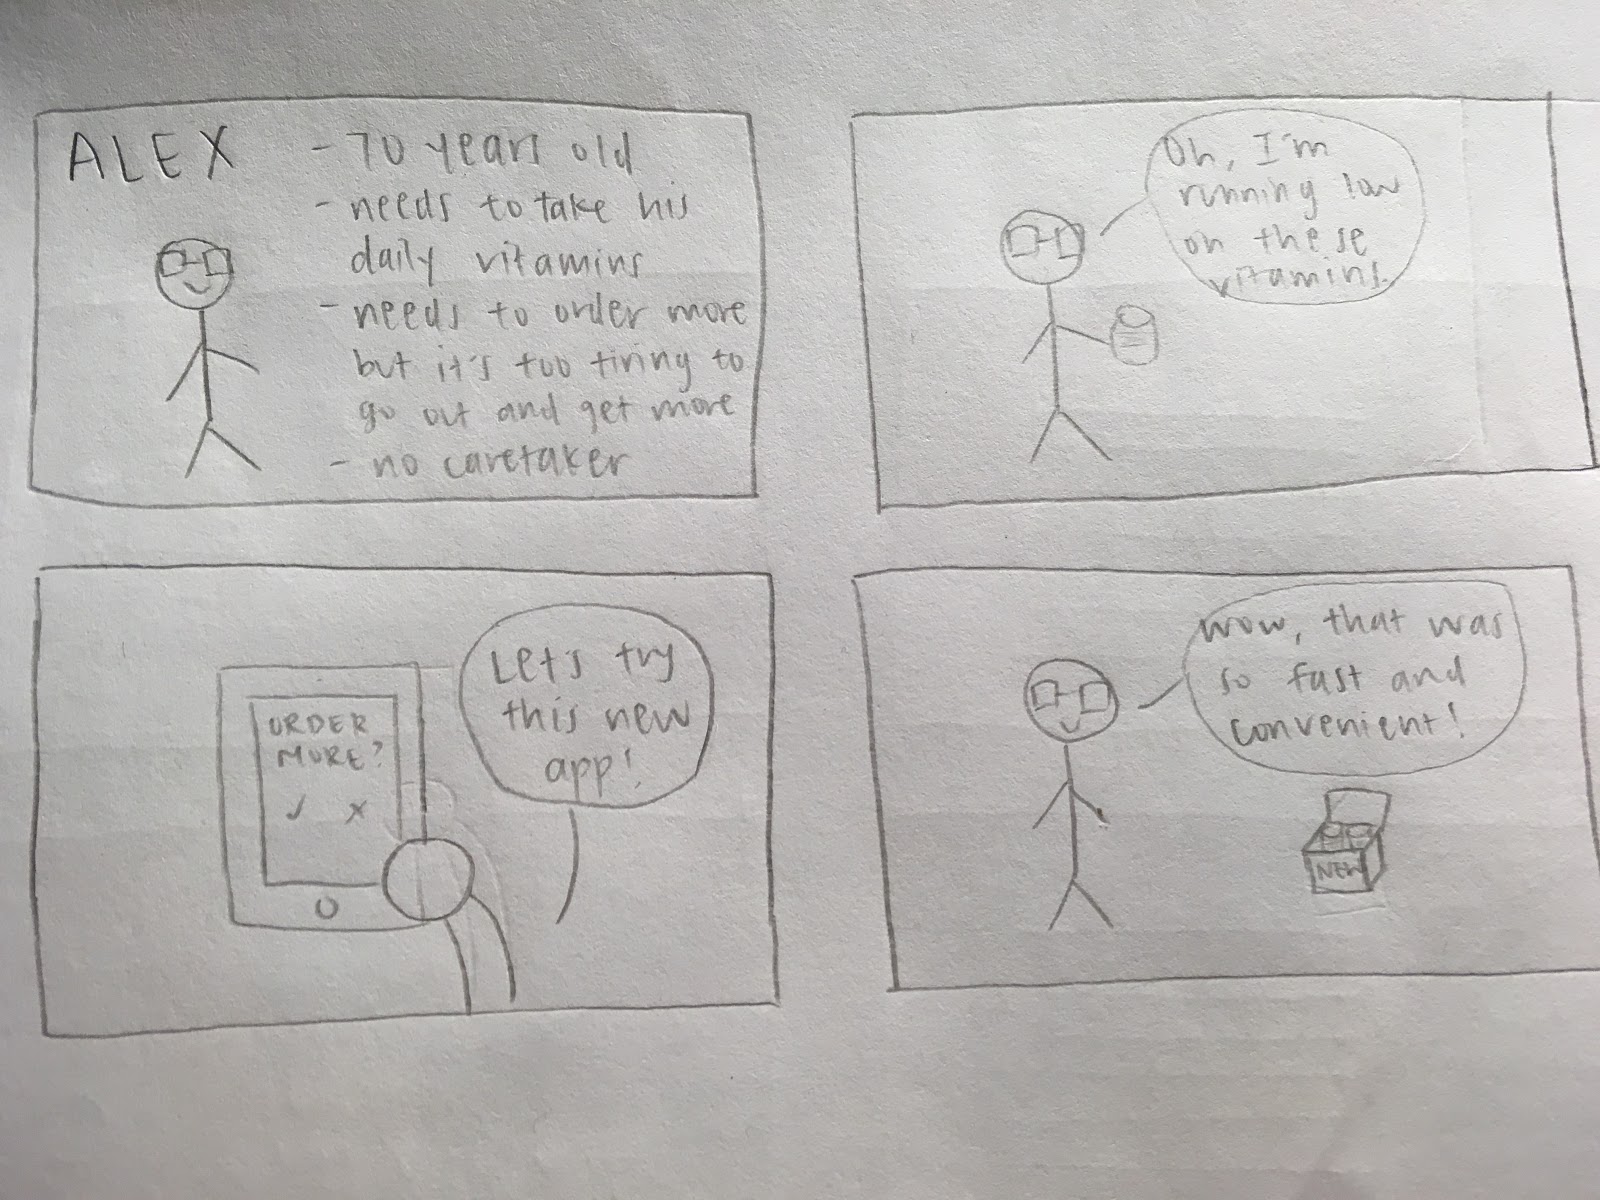 ALEX
- 70 years old
- needs to take his
daily vitamins
- needs to order more
but it's too tiring to
go out and get more
- no caretaker
Oh, I'm
running low
on these
vitamins.
ORDER
MORE?
✓ x
Let's try
this new
app!
wow, that was
so fast and
convenient!
NEW